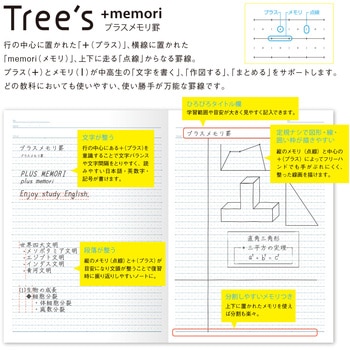 Tree's +memori
プラスメモリ罫
プラス
メモリ
点線
行の中心に置かれた「＋(プラス)」、横線に置かれた
「memori(メモリ)」、上下に走る「点線」からなる罫線。
プラス(＋)とメモリ(｜)が中高生の「文字を書く」、「作図する」、「まとめる」をサポートします。
どの教科においても使いやすい、使い勝手が万能な罫線です。
文字が整う
行の中心にある＋(プラス)を
意識することで文字バランス
や文字間隔をとりやすく、読
みやすい日本語・英数字・
記号が書けます。
プラスメモリ罫
プラスメモリ罫
PLUS MEMORI
plus memori
Enjoy study English.
世界四大文明
・メソポタミア文明
・エジプト文明
・インダス文明
・黄河文明
段落が整う
縦のメモリ(点線)と＋(プラス)が
目安になり文頭が整うことで復習
時に振り返りしやすいノートに。
(1)生物の成長
◆細胞分裂
・体細胞分裂
・減数分裂
ひろびろタイトル欄
学習範囲や目安が大きく見やすく記入できます。
プラスメモリ罫
定規ナシで図形・線・
囲い枠が描きやすい
縦のメモリ(点線)と中心の
＋(プラス)によってフリーハ
ンドでも手がぶれにくく、
整った線画が描けます。
直角三角形
・三平方の定理
a²+b²=c²
分割しやすいメモリつき
上下に置かれたメモリを使え
ば分割も楽々。